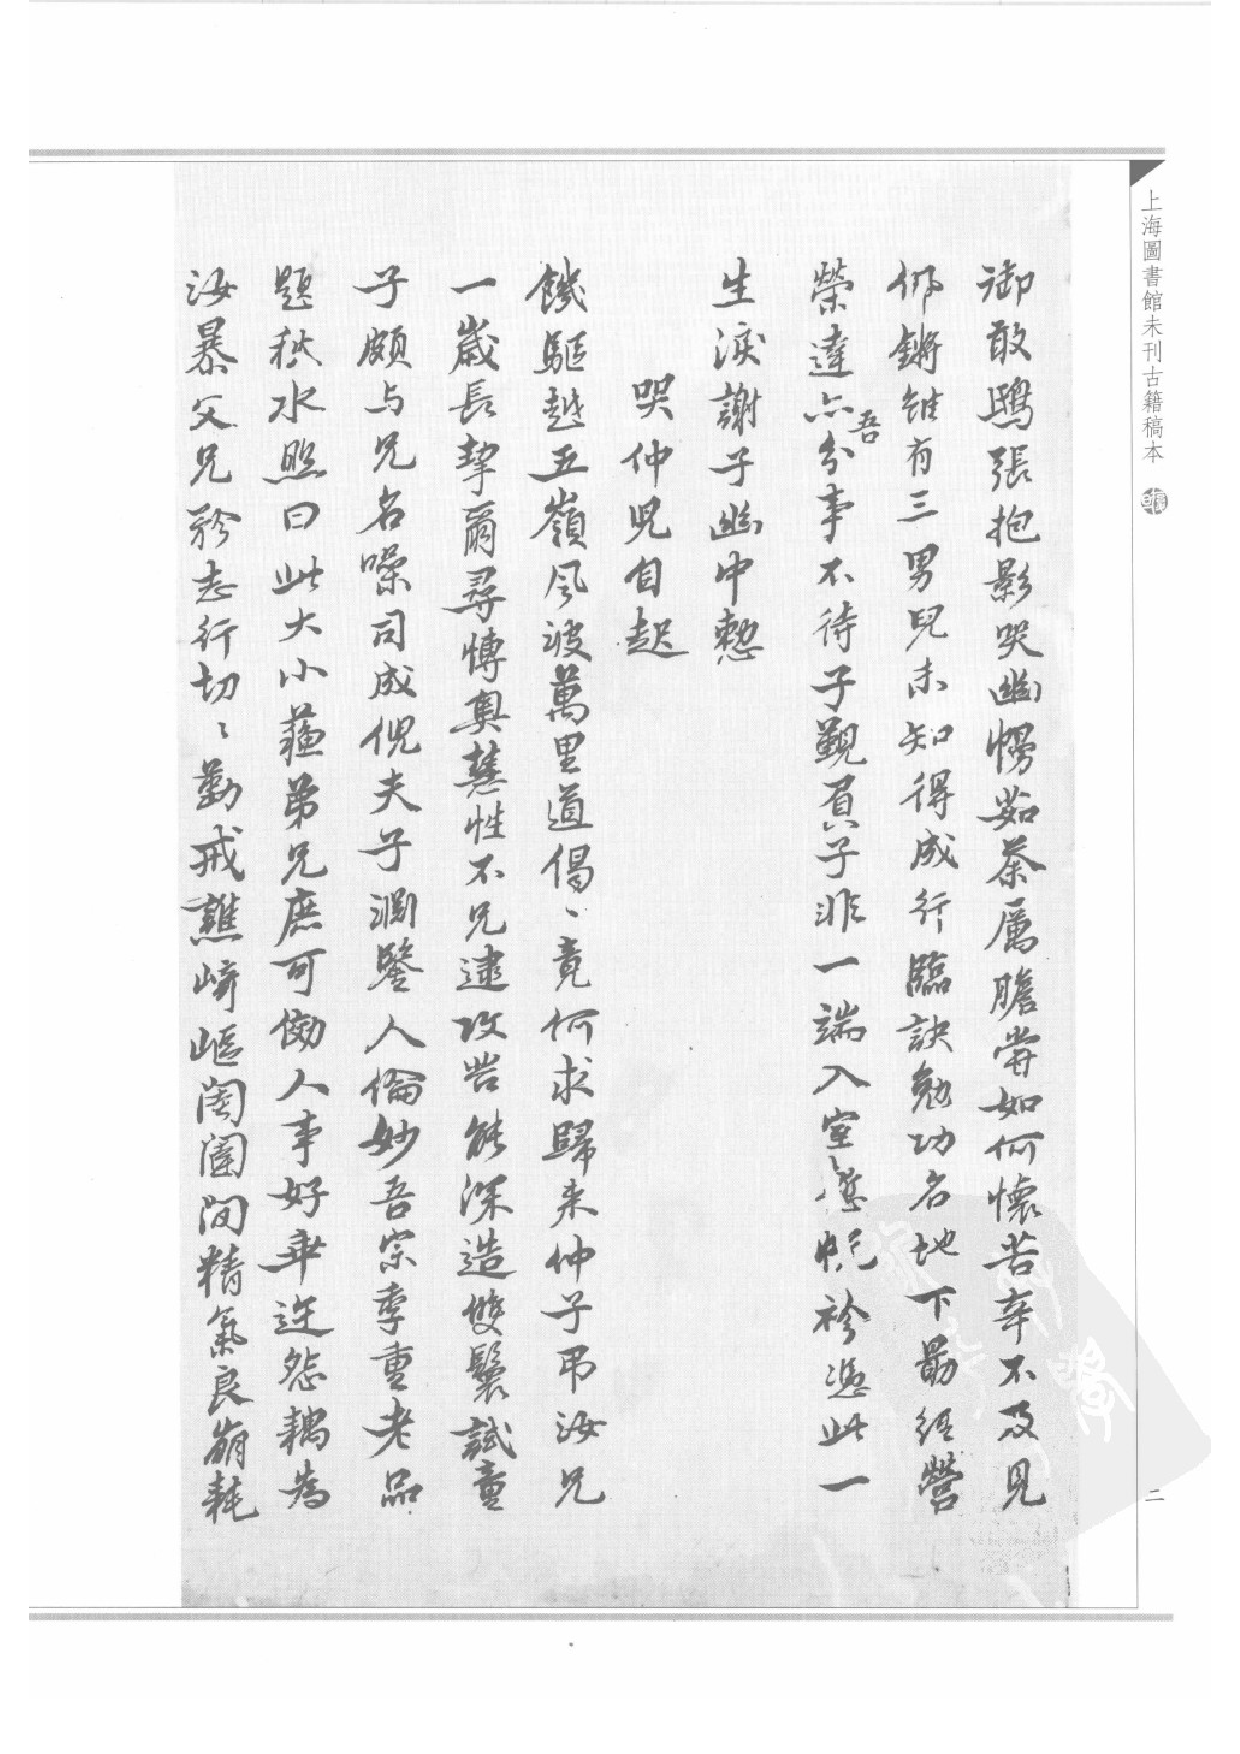 上海圖書館未刊古籍稿本
二
御敢鴟張抱影哭幽惸茹荼厲膽嘗如何懷苦辛不及見
鏘雖有三男兒未知得成行臨訣勉功名地下勗經營
榮達亦吾分事不待子覲負子非一端入室悲帷袗憑此一
生淚謝子幽中愁
哭仲兒自超
饑驅越五嶺風波萬里道偈〻竟何求歸来仲子弔汝兄
一歲長挈爾尋博奧慧性不兄逮攻苦能深造雙鬟試童
子頗与兄名噪司成倪夫子淵鑒人倫妙吾宗季重老品
題秋水照曰此大小蘓弟兄庶可傚人事好乖迕怨耦為
汝暴父兄矜志行切〻勤戒譙崎嶇閤闈间精氣良崩耗